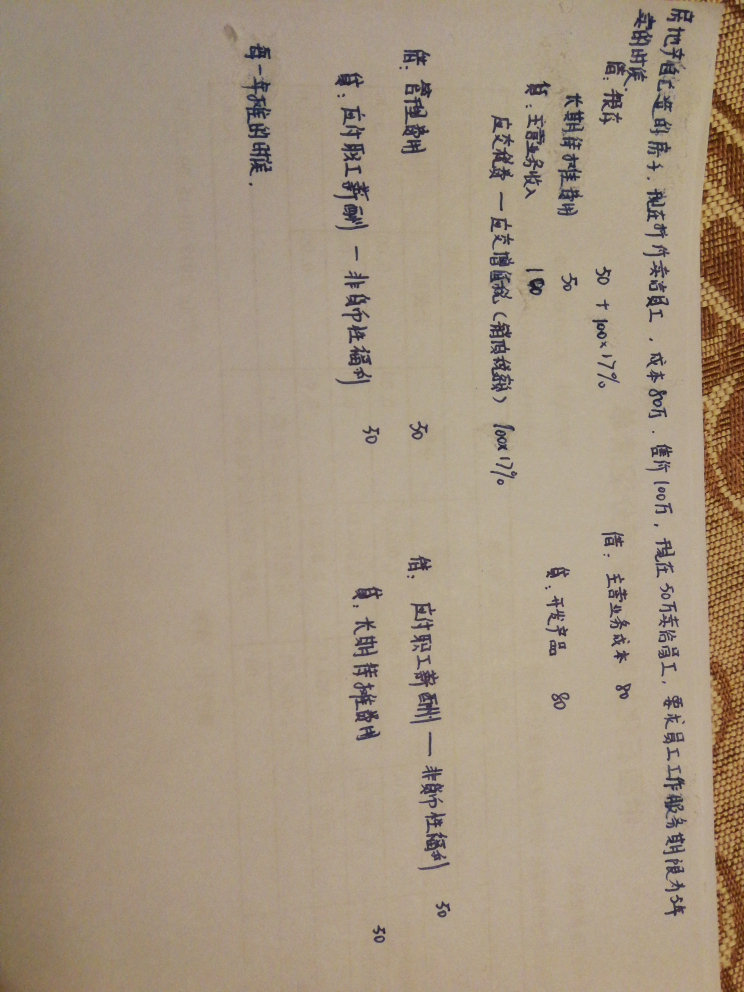 房地产自己造的房子，现在折价卖给员工，成本80万．售价100万，现在50万卖给员工，要求员工工作服务期限为5年
卖的时候．
借：银存 50 + 100×17%
长期待摊费用 50
贷：主营业务收入 100
应交税费 — 应交增值税（销项税额） 100×17%
借：主营业务成本 80
贷：开发产品 80
借：管理费用 50
贷：应付职工薪酬 — 非货币性福利 50
借：应付职工薪酬 — 非货币性福利 50
贷：长期待摊费用 50
每一年摊的时候．